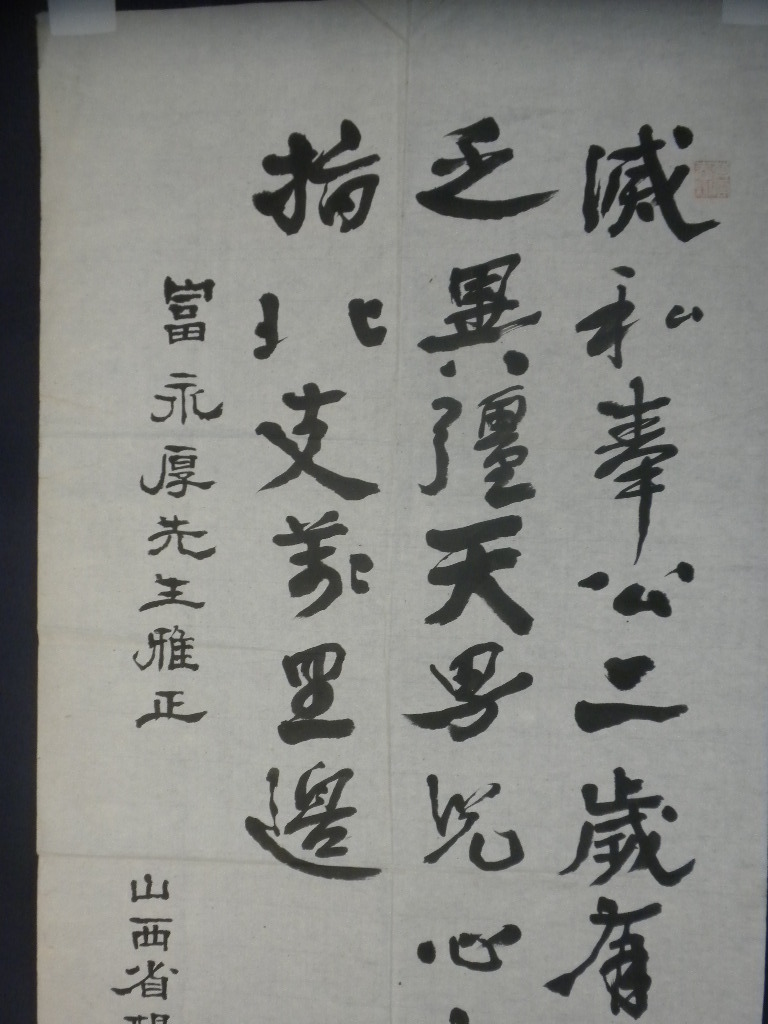 滅私奉公二歲有
乏異疆天男児心
指北支萬里邊
富永厚先生雅正
山西省